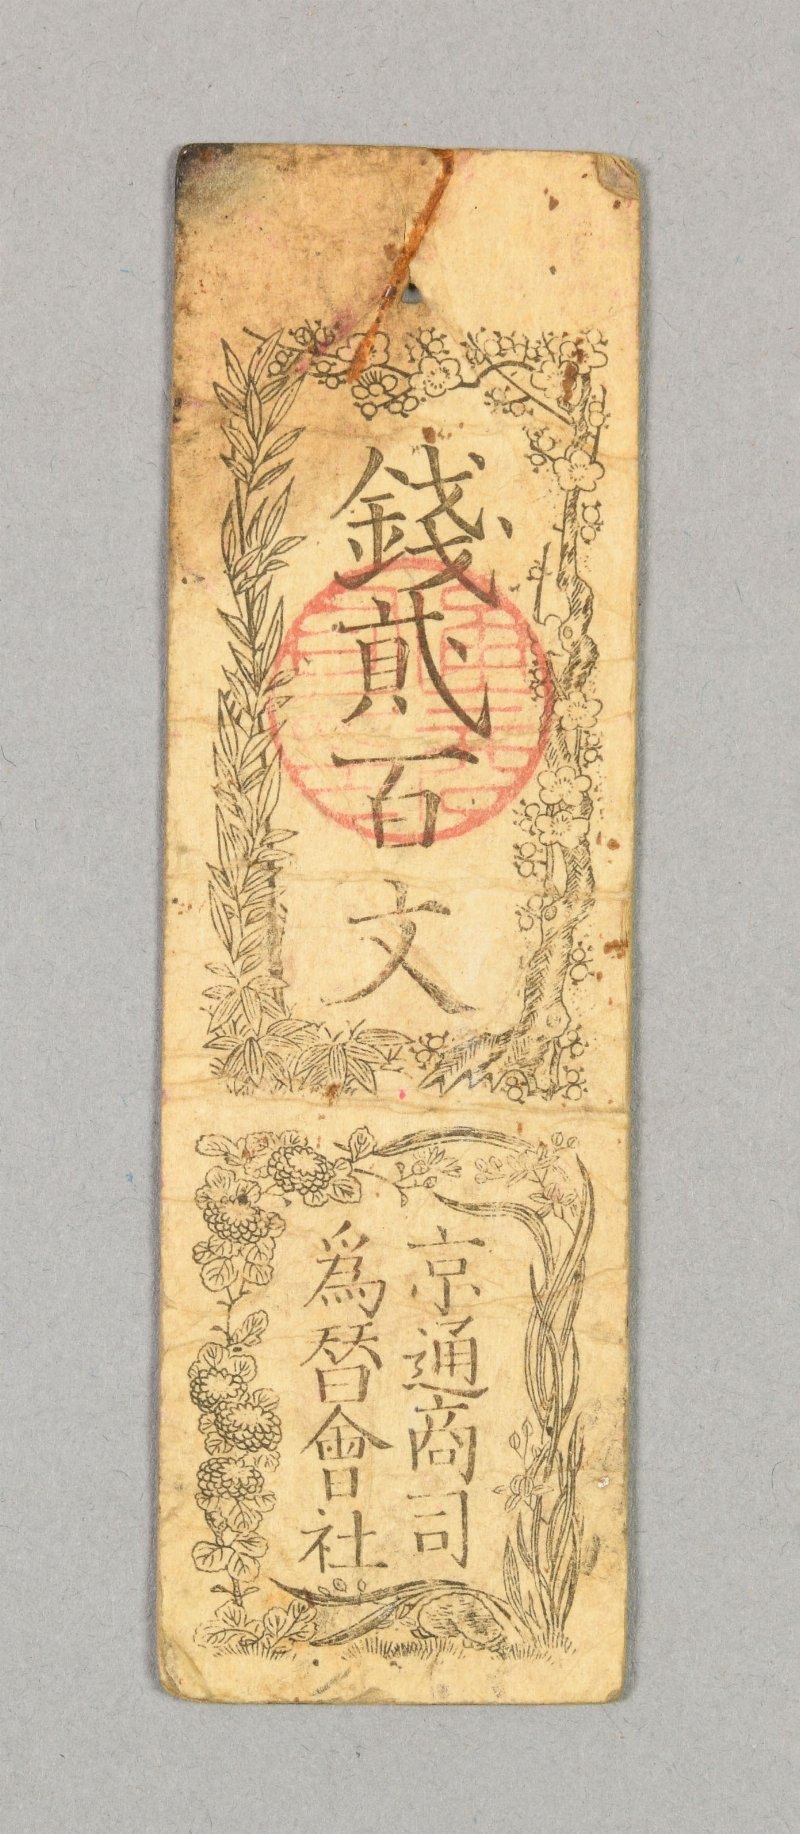 錢貳百文
京通商司
爲替會社